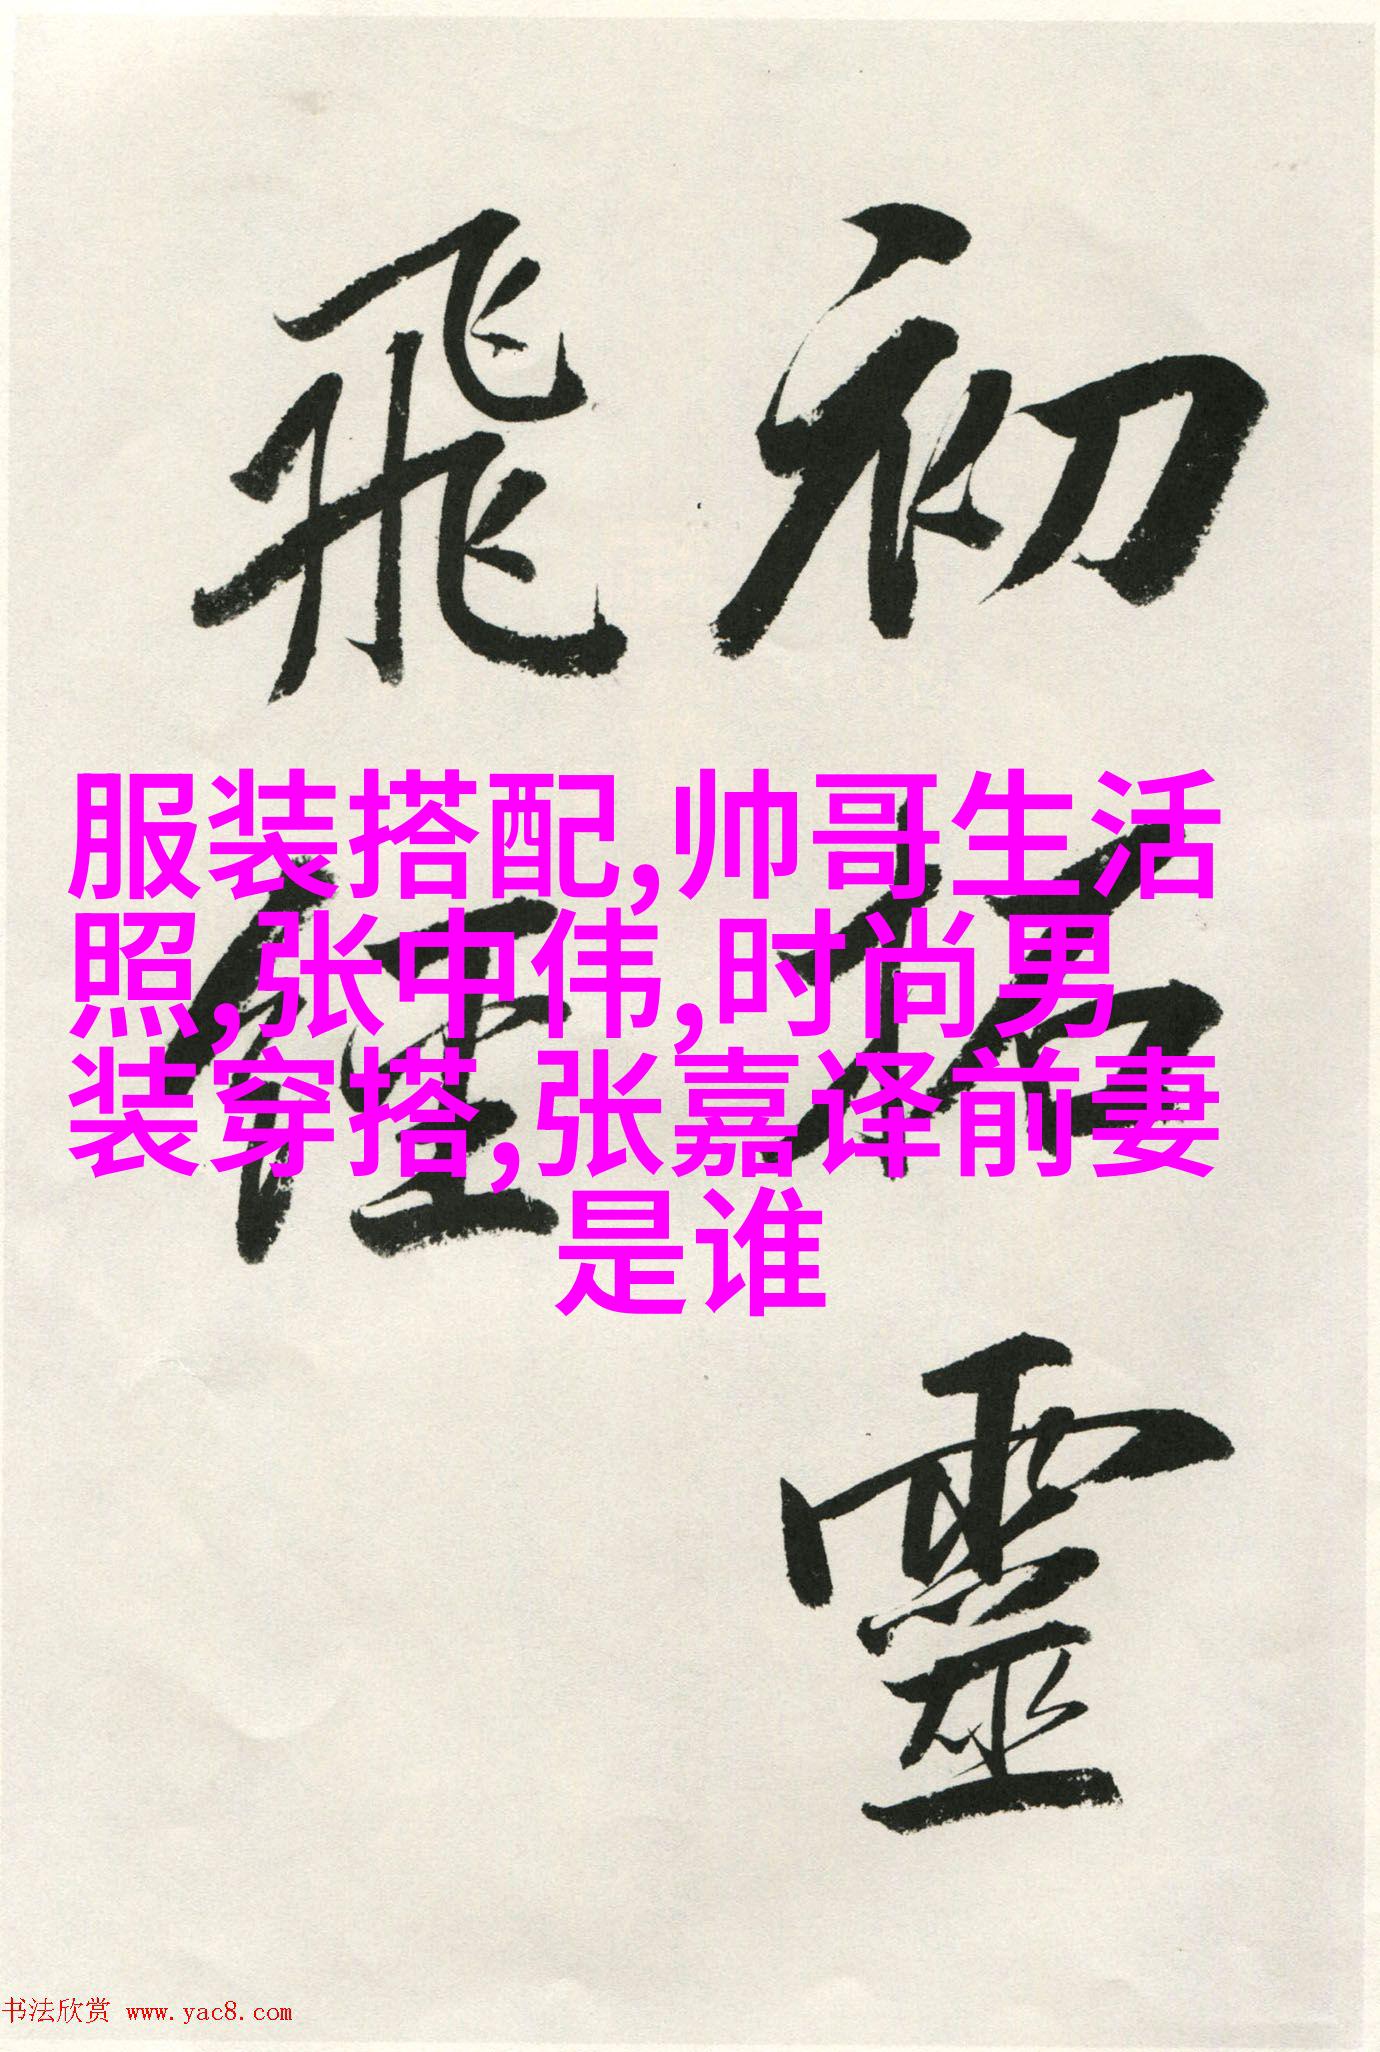 初拓靈
飛經
服装搭配,帅哥生活
照,张中伟,时尚男
装穿搭,张嘉译前妻
是谁
书法欣赏 www.yac8.com